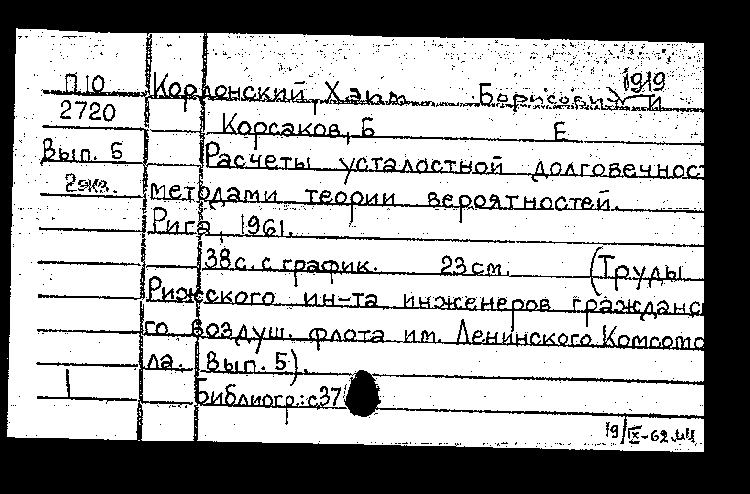 1919
П10 Кордонский, Хаим Борисович и
2720 Корсаков, Б Е
Вып. 5 Расчеты усталостной долговечност
2экз. методами теории вероятностей.
Рига, 1961.
38с. с график. 23см. (Труды
Рижского ин-та инженеров гражданс
го воздуш. флота им. Ленинского Комсомо
ла. Вып. 5).
Библиогр.: с37
19/IX-62